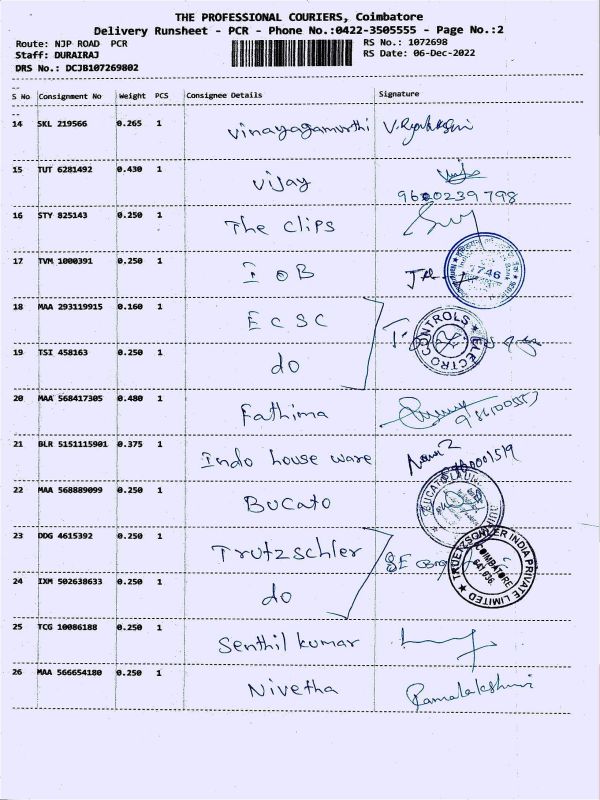 THE PROFESSIONAL COURIERS, Coimbatore
Delivery Runsheet - PCR - Phone No.:0422-3505555 - Page No.:2
Route: NJP ROAD PCR
RS No.: 1072698
Staff: DURAIRAJ
RS Date: 06-Dec-2022
DRS No.: DCJB107269802
S No Consignment No Weight PCS Consignee Details Signature
14 SKL 219566 0.265 1 Vinayagamurthi
15 TUT 6281492 0.430 1 Vijay
9600239798
16 STY 825143 0.250 1 The Clips
17 TVM 1000391 0.250 1 IOB
746
18 MAA 293119915 0.160 1 ECSC
ELECTRO CONTROLS
19 TSI 458163 0.250 1 do
20 MAA 568417305 0.480 1 Fathima
21 BLR 5151115901 0.375 1 Indo house ware
22 MAA 568889099 0.250 1 Bucato
BUCATO
23 DDG 4615392 0.250 1 Trutzschler
TRUETZSCHLER INDIA PRIVATE LIMITED
COIMBATORE
641 036.
24 IXM 502638633 0.250 1 do
25 TCG 10086188 0.250 1 Senthil kumar
26 MAA 566654180 0.250 1 Nivetha
Ramalakshmi